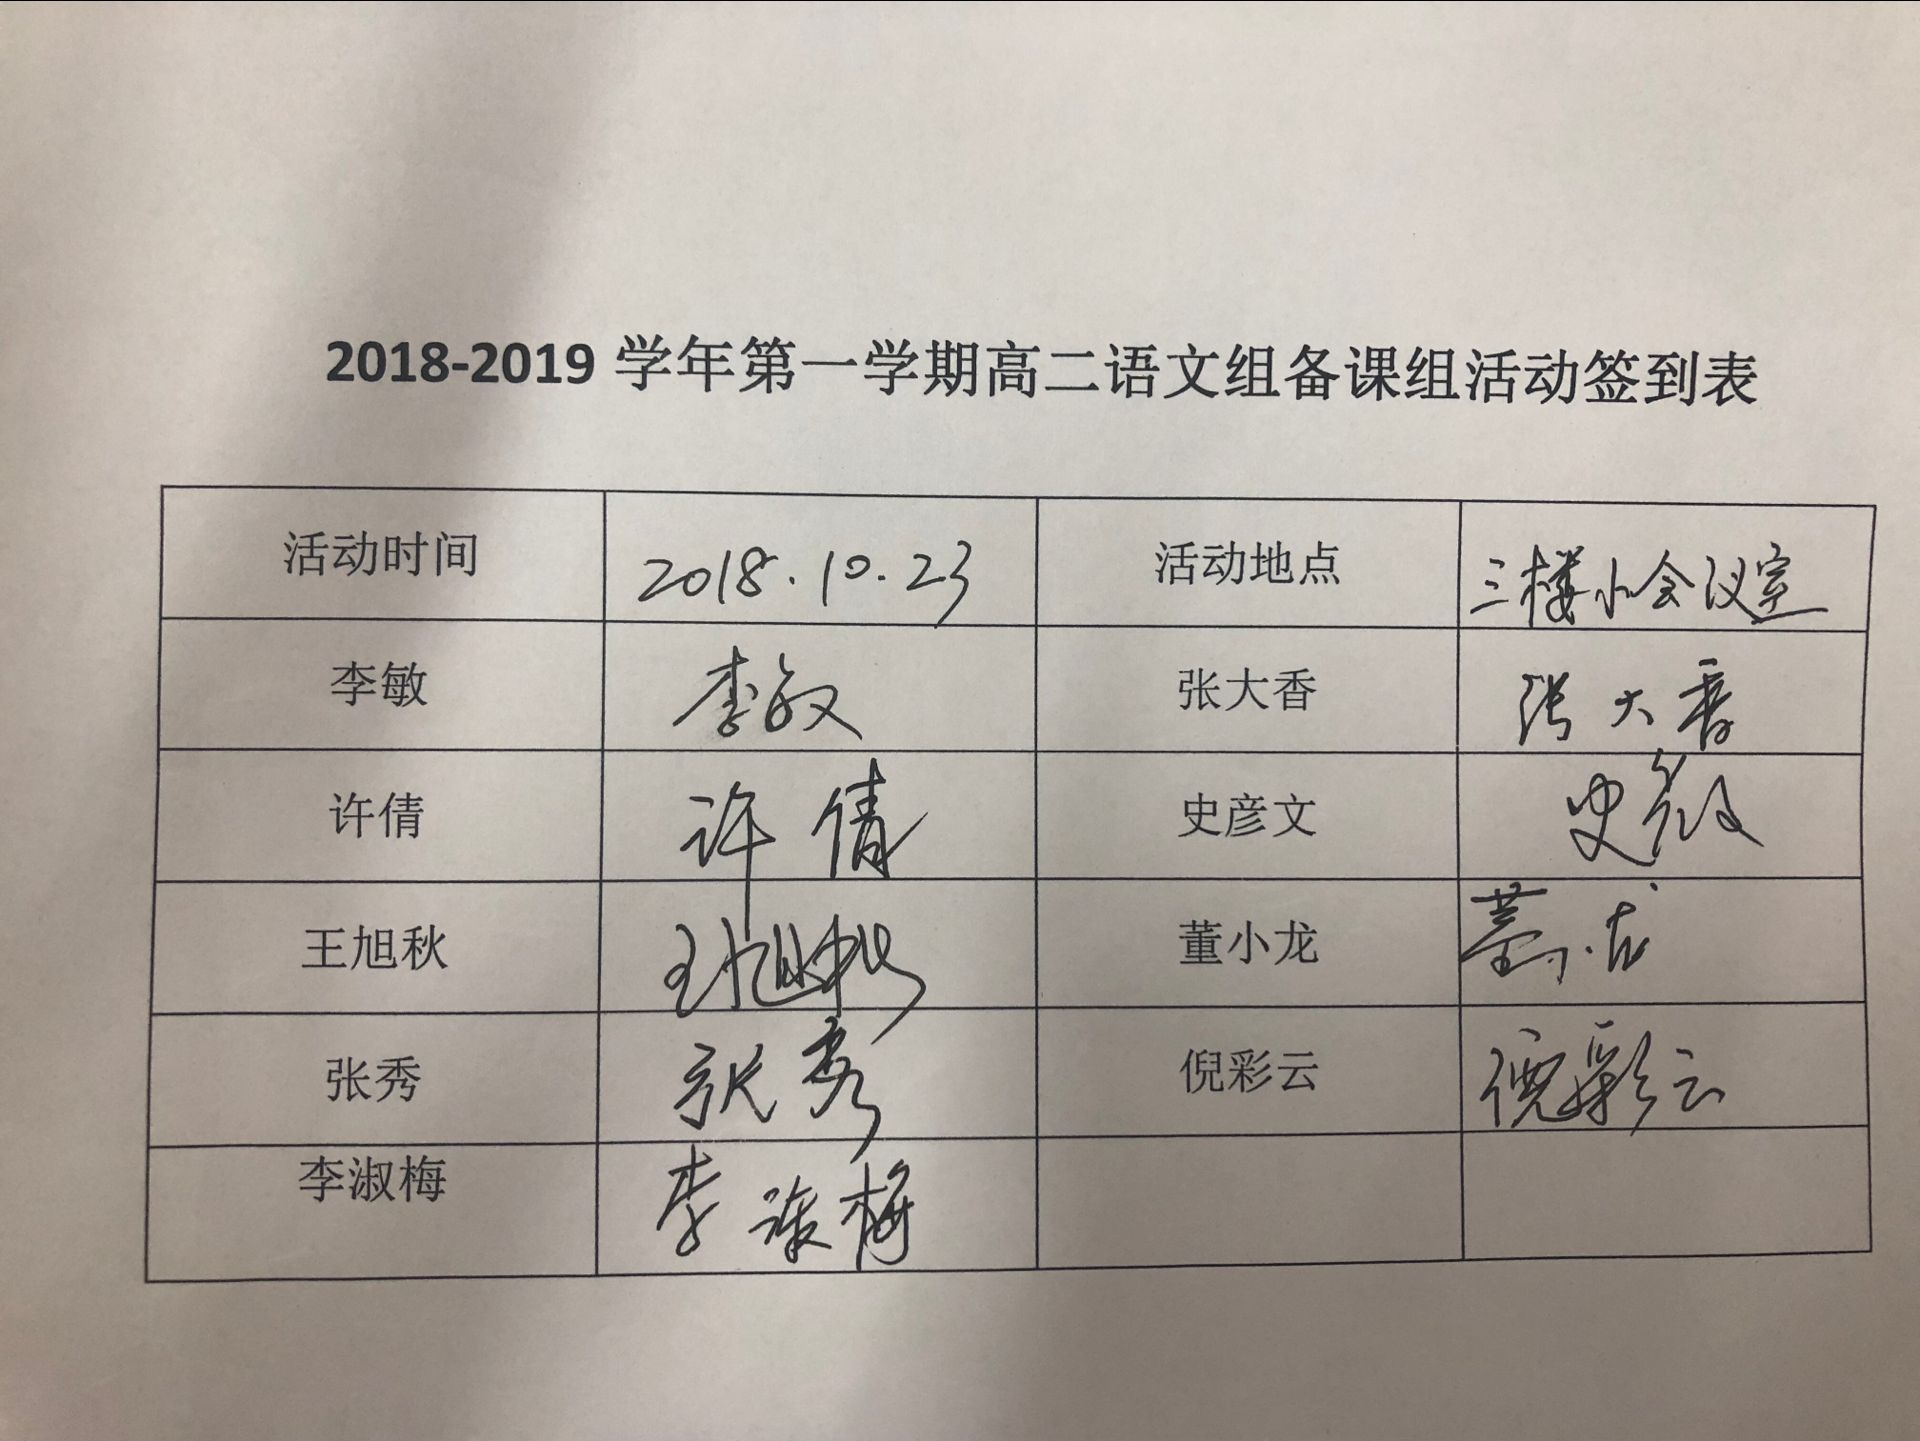 2018-2019 学年第一学期高二语文组备课组活动签到表
活动时间 2018.10.23 活动地点 三楼小会议室
李敏 李敏 张大香 张大香
许倩 许倩 史彦文 史彦文
王旭秋 王旭秋 董小龙 董小龙
张秀 张秀 倪彩云 倪彩云
李淑梅 李淑梅